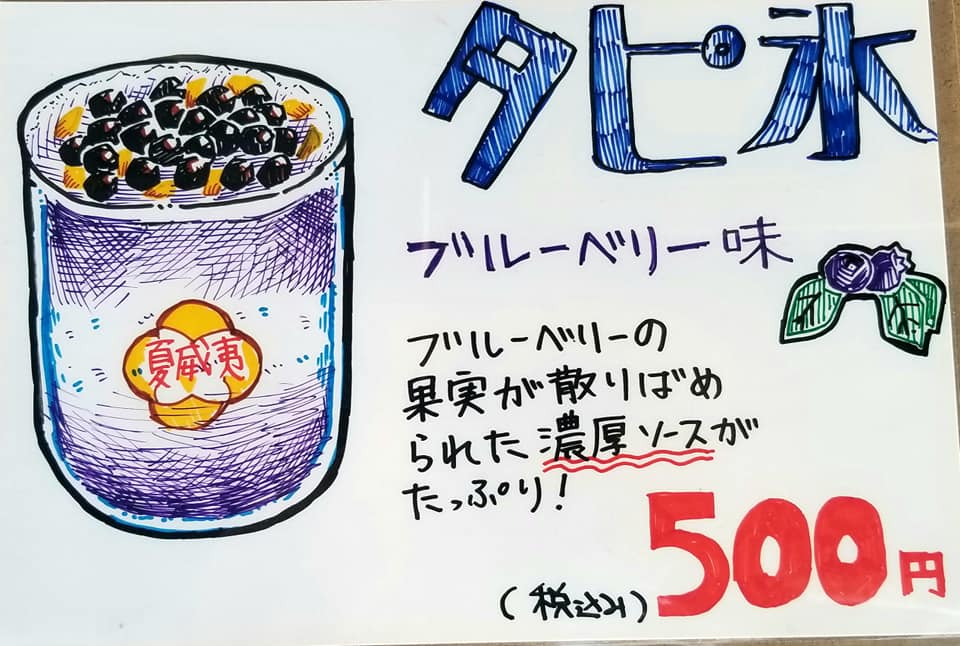 タピ氷
ブルーベリー味
ブルーベリーの
果実が散りばめ
られた濃厚ソースが
たっぷり!
500円
(税込み)
夏威夷